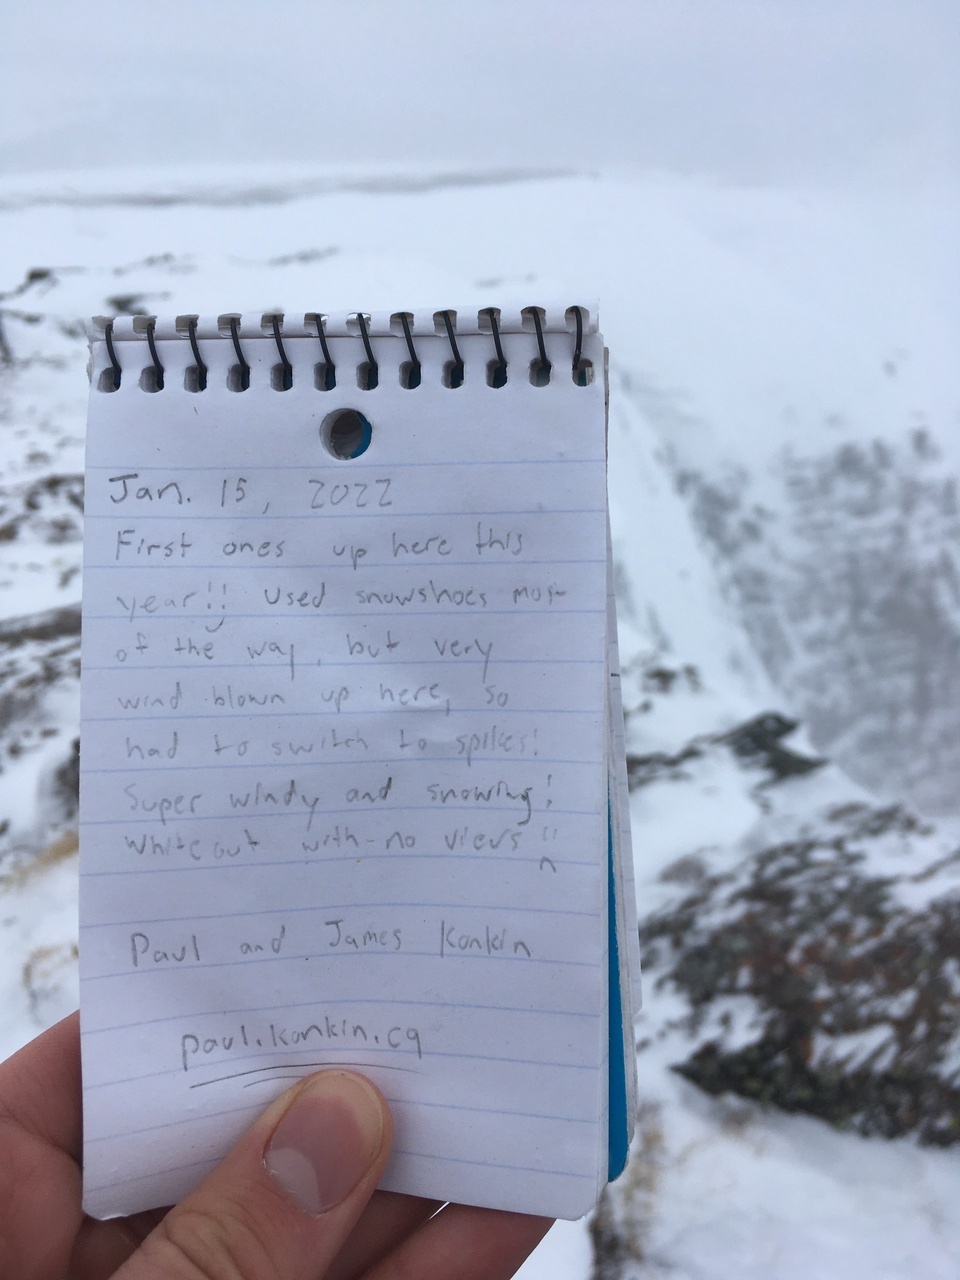 Jan. 15, 2022
First ones up here this
year!! Used snowshoes most
of the way, but very
wind blown up here, so
had to switch to spikes!
Super windy and snowing!
Whiteout with no views
Paul and James Konkin
paul.konkin.ca